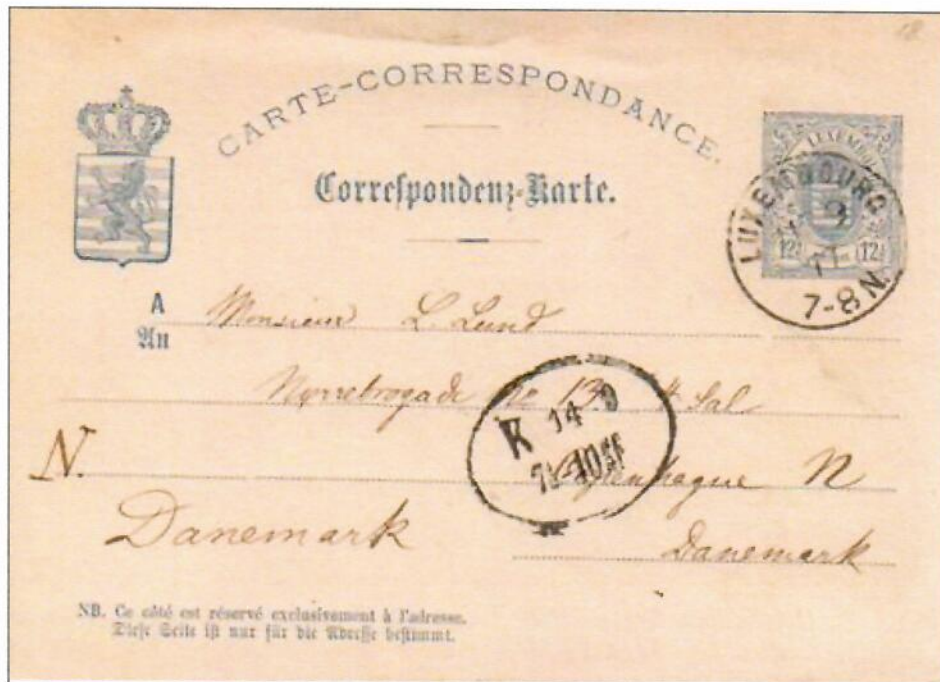 CARTE-CORRESPONDANCE.
Correspondenz-Karte.
LUXEMBOURG
12 12
7-8 N.
A Monsieur L. Lund
An
Nørrebrogade No 13 Sal
K 14 9
N. Copenhague N
Danemark Danemark
NB. Ce côté est réservé exclusivement à l'adresse.
Diese Seite ist nur für die Adresse bestimmt.